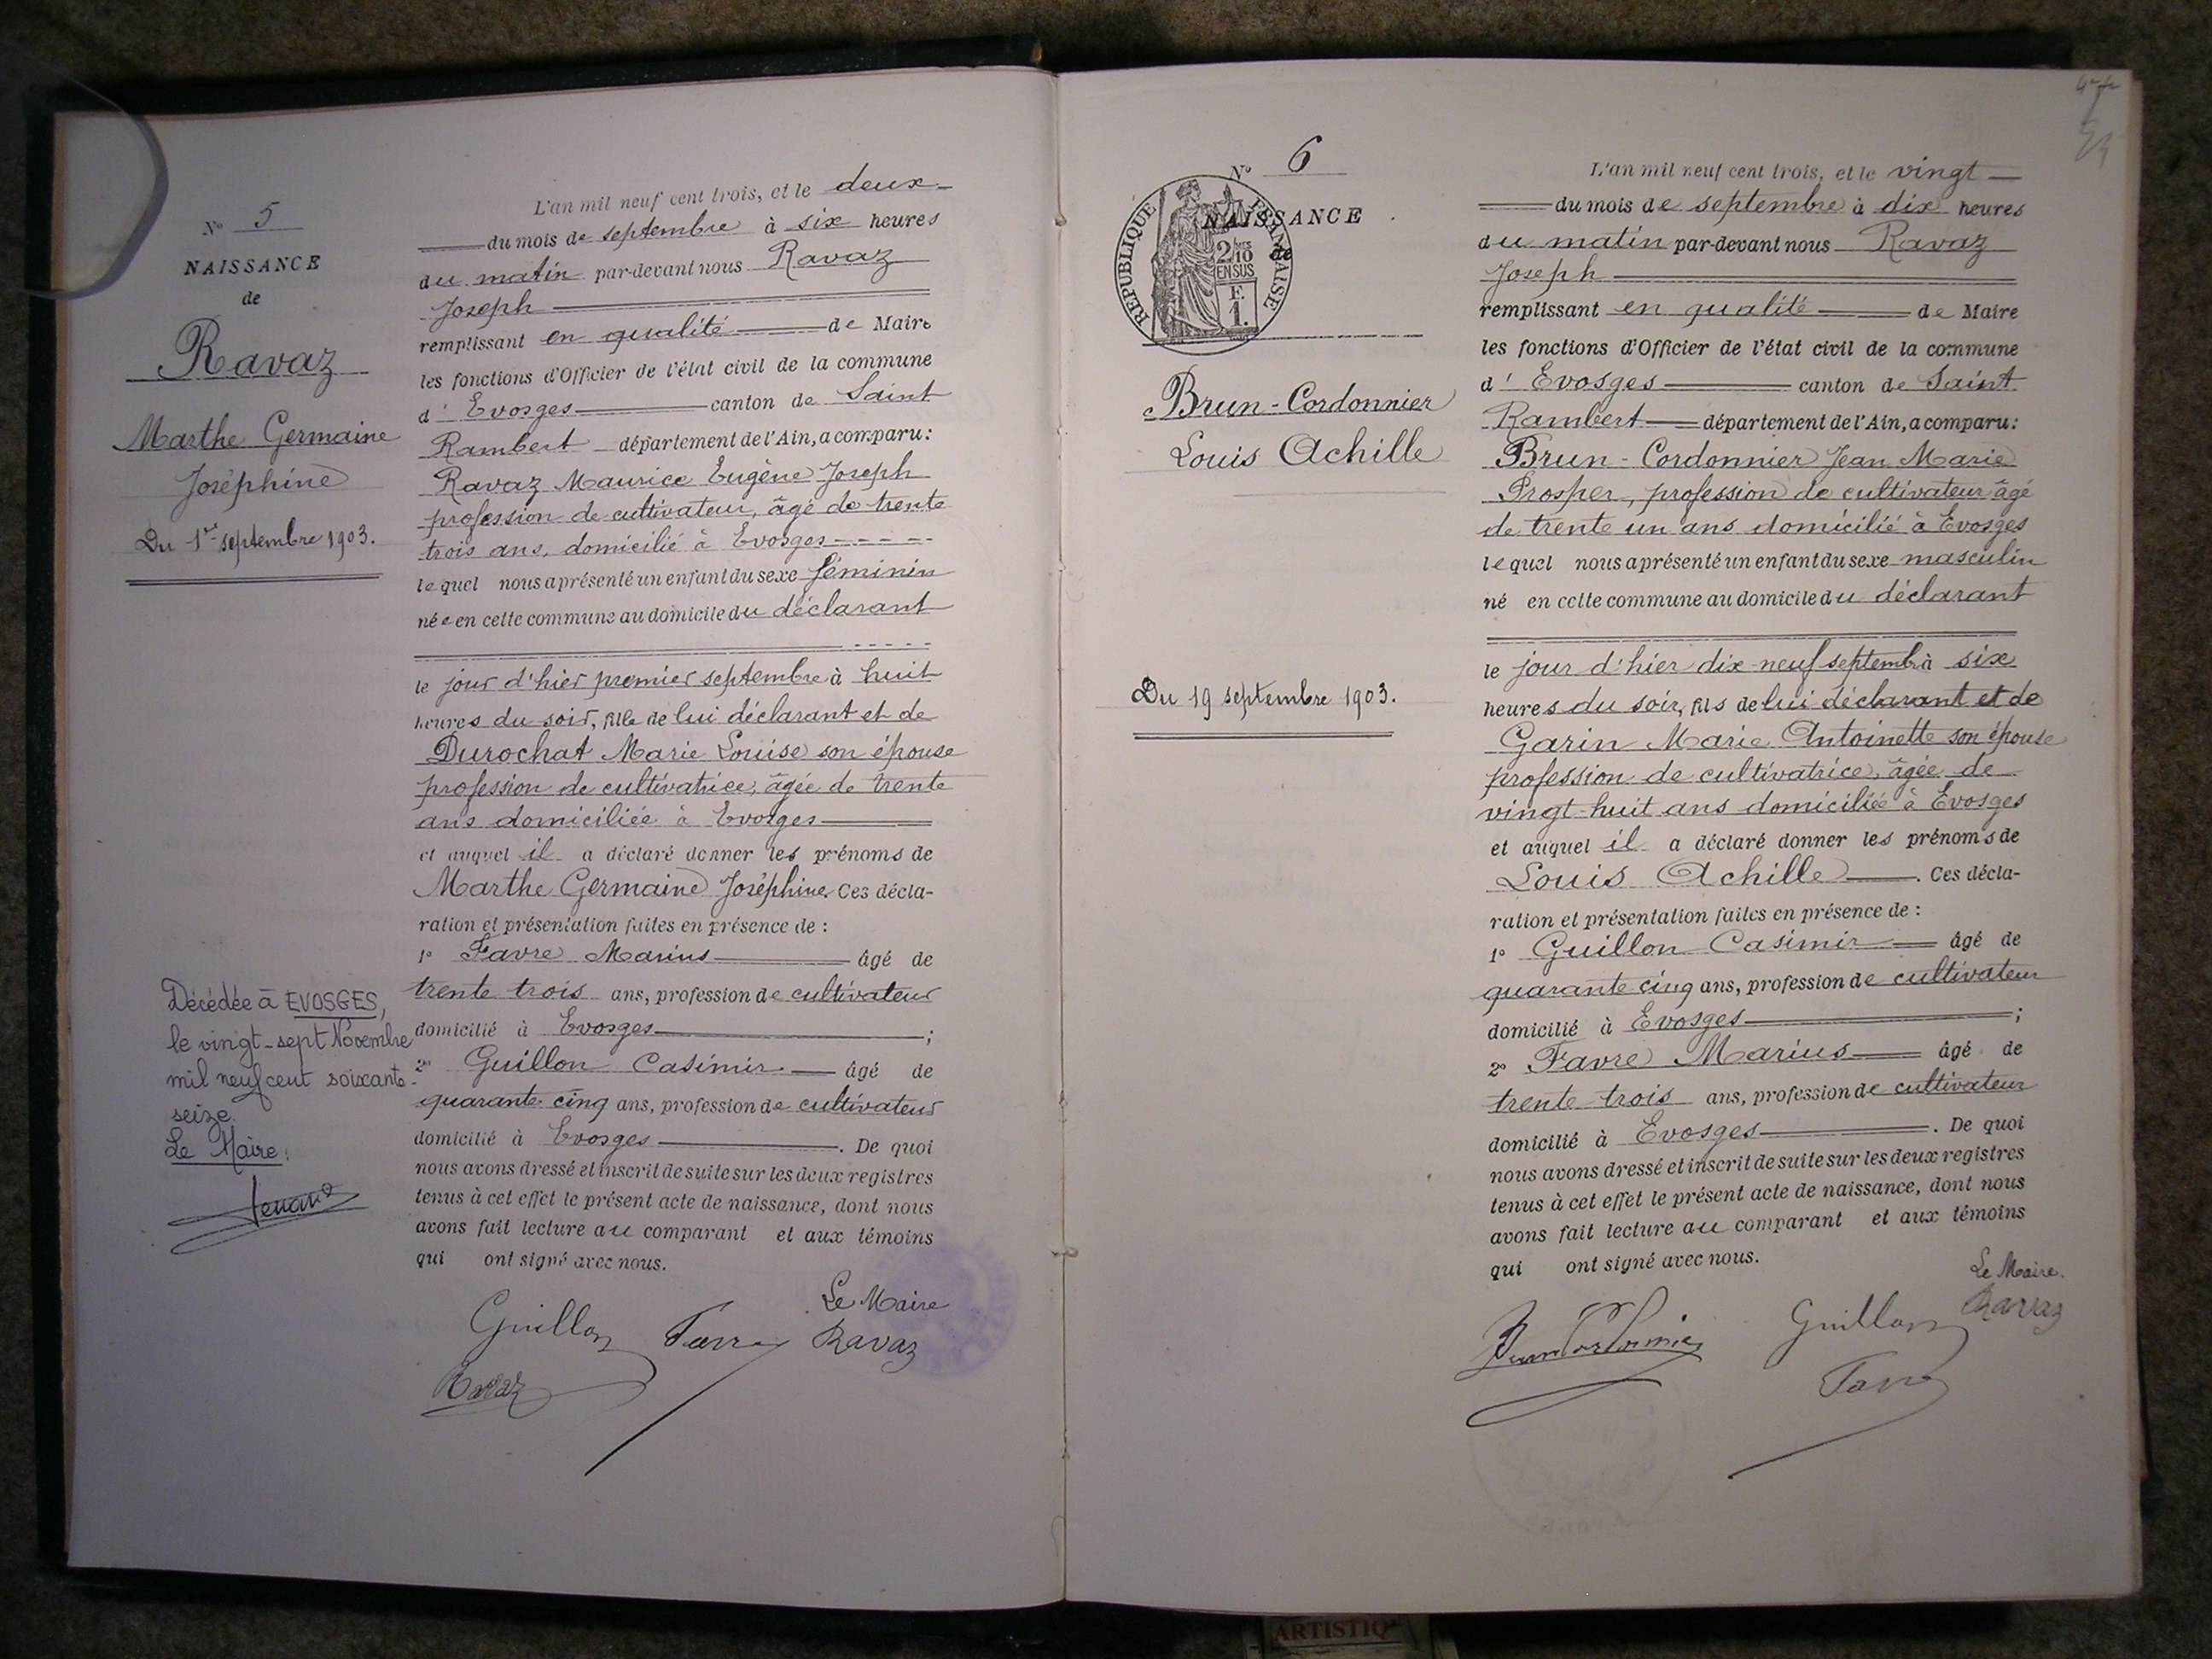 N° 5
NAISSANCE
de
Ravaz
Marthe Germaine
Joséphine
Du 1er septembre 1903.
Décédée à EVOSGES,
le vingt-sept Novembre
mil neuf cent soixante-
seize.
Le Maire:
L'an mil neuf cent trois, et le deux
du mois de septembre à six heures
du matin par-devant nous Ravaz
Joseph
remplissant en qualité de Maire
les fonctions d'Officier de l'état civil de la commune
d' Evosges canton de Saint
Rambert département de l'Ain, a comparu:
Ravaz Maurice Eugène Joseph
profession de cultivateur, âgé de trente
trois ans, domicilié à Evosges
lequel nous a présenté un enfant du sexe féminin
née en cette commune au domicile du déclarant
le jour d'hier premier septembre à huit
heures du soir, fille de lui déclarant et de
Durochat Marie Louise son épouse
profession de cultivatrice, âgée de trente
ans domiciliée à Evosges
et auquel il a déclaré donner les prénoms de
Marthe Germaine Joséphine. Ces décla-
ration et présentation faites en présence de :
1° Favre Marius âgé de
trente trois ans, profession de cultivateur
domicilié à Evosges ;
2° Guillon Casimir âgé de
quarante cinq ans, profession de cultivateur
domicilié à Evosges . De quoi
nous avons dressé et inscrit de suite sur les deux registres
tenus à cet effet le présent acte de naissance, dont nous
avons fait lecture au comparant et aux témoins
qui ont signé avec nous.
Le Maire
Guillon Favre Ravaz
Ravaz
N° 6
NAISSANCE
de
REPUBLIQUE FRANÇAISE
2/10 EN SUS
F. 1.
Brun-Cordonnier
Louis Achille
Du 19 septembre 1903.
L'an mil neuf cent trois, et le vingt
du mois de septembre à dix heures
du matin par-devant nous Ravaz
Joseph
remplissant en qualité de Maire
les fonctions d'Officier de l'état civil de la commune
d' Evosges canton de Saint
Rambert département de l'Ain, a comparu:
Brun-Cordonnier Jean Marie
Prosper, profession de cultivateur âgé
de trente un ans domicilié à Evosges
lequel nous a présenté un enfant du sexe masculin
né en cette commune au domicile du déclarant
le jour d'hier dix-neuf septemb. à six
heures du soir, fils de lui déclarant et de
Garin Marie Antoinette son épouse
profession de cultivatrice, âgée de
vingt-huit ans domiciliée à Evosges
et auquel il a déclaré donner les prénoms de
Louis Achille . Ces décla-
ration et présentation faites en présence de :
1° Guillon Casimir âgé de
quarante cinq ans, profession de cultivateur
domicilié à Evosges ;
2° Favre Marius âgé de
trente trois ans, profession de cultivateur
domicilié à Evosges . De quoi
nous avons dressé et inscrit de suite sur les deux registres
tenus à cet effet le présent acte de naissance, dont nous
avons fait lecture au comparant et aux témoins
qui ont signé avec nous.
Le Maire.
Brun Cordonnier Guillon Ravaz
Favre
ARTISTIQ